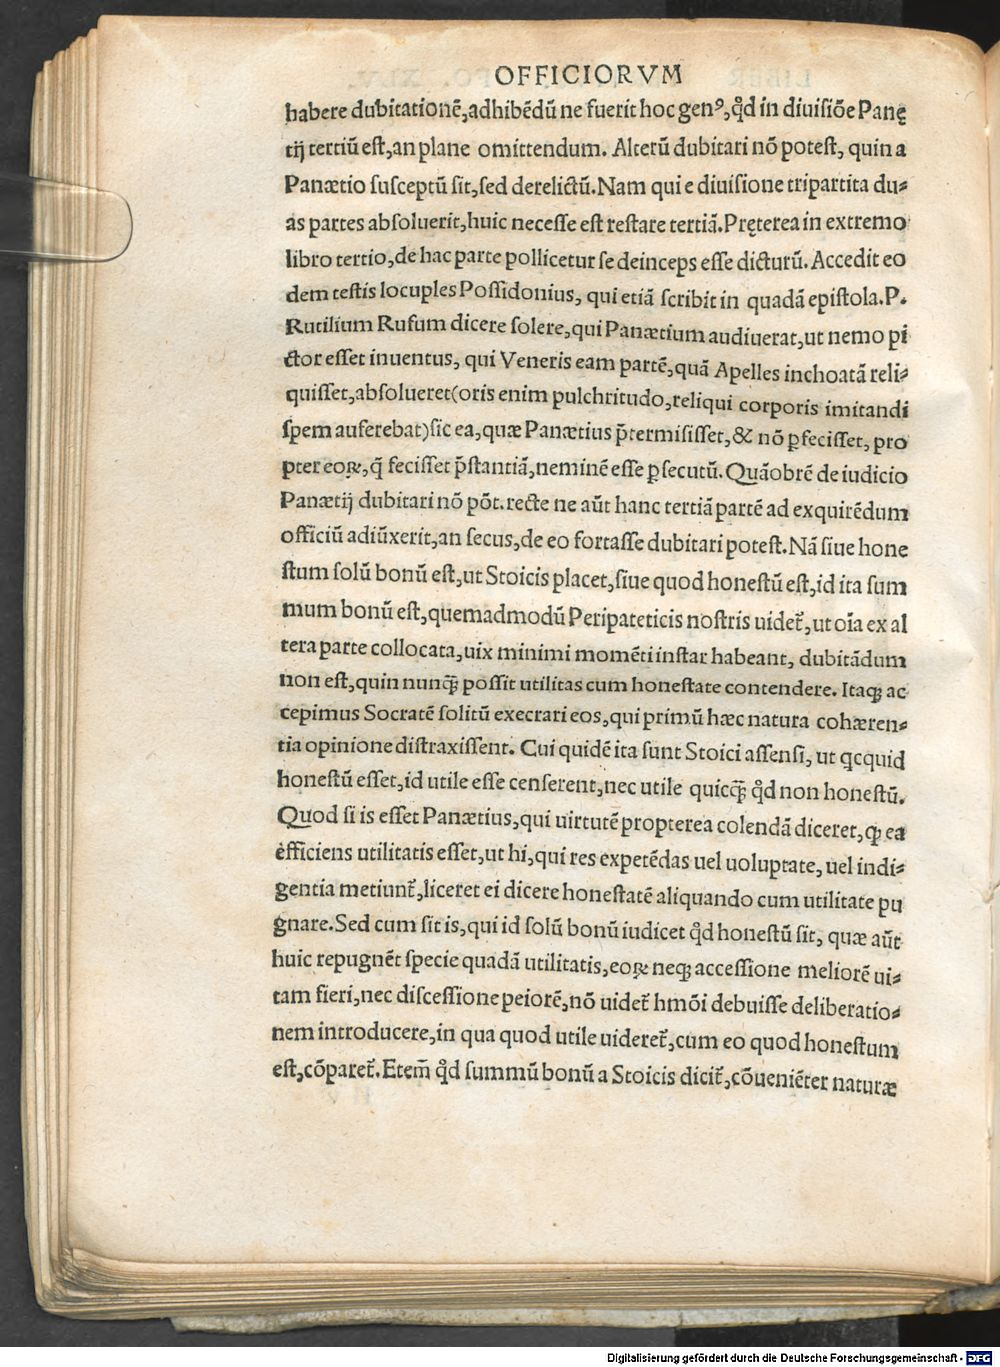 OFFICIORVM
habere dubitationē,adhibēdū ne fuerit hoc genꝰ,qđ in diuisiōe Panę
tij tertiū est,an plane omittendum. Alterū dubitari nō potest, quin a
Panætio susceptū sit,sed derelictū.Nam qui e diuisione tripartita du-
as partes absoluerit,huic necesse est restare tertiā.Pręterea in extremo
libro tertio,de hac parte pollicetur se deinceps esse dicturū. Accedit eo
dem testis locuples Possidonius, qui etiā scribit in quadā epistola.P.
Rutilium Rufum dicere solere,qui Panætium audiuerat,ut nemo pi
ctor esset inuentus, qui Veneris eam partē,quā Apelles inchoatā reli-
quisset,absolueret(oris enim pulchritudo,reliqui corporis imitandi
spem auferebat)sic ea,quæ Panætius p̄termisisset,& nō ꝑfecisset, pro
pter eoꝝ,q̄ fecisset p̄stantiā,neminē esse ꝑsecutū. Quāobrē de iudicio
Panætij dubitari nō pōt. recte ne aūt hanc tertiā partē ad exquirēdum
officiū adiūxerit,an secus,de eo fortasse dubitari potest.Nā siue hone
stum solū bonū est,ut Stoicis placet,siue quod honestū est,id ita sum
mum bonū est,quemadmodū Peripateticis nostris uidet᷑,ut oīa ex al
tera parte collocata,uix minimi momēti instar habeant, dubitādum
non est,quin nunꝗ̄ possit utilitas cum honestate contendere. Itaqꝫ ac
cepimus Socratē solitū execrari eos,qui primū hæc natura cohæren-
tia opinione distraxissent. Cui quidē ita sunt Stoici assensi, ut qcquid
honestū esset,id utile esse censerent,nec utile quicꝗ̄ qđ non honestū.
Quod si is esset Panætius,qui uirtutē propterea colendā diceret,ꝙ ea
efficiens utilitatis esset,ut hi,qui res expetēdas uel uoluptate, uel indi-
gentia metiunt᷑,liceret ei dicere honestatē aliquando cum utilitate pu
gnare.Sed cum sit is,qui id solū bonū iudicet qđ honestū sit, quæ aūt
huic repugnēt specie quadā utilitatis,eoꝝ neqꝫ accessione meliorē ui-
tam fieri,nec discessione peiorē,nō uidet᷑ hmōi debuisse deliberatio-
nem introducere,in qua quod utile uideret᷑,cum eo quod honestum
est,cōparet᷑.Etem̄ qđ summū bonū a Stoicis dicit᷑,cōueniēter naturæ
Digitalisierung gefördert durch die Deutsche Forschungsgemeinschaft - DFG